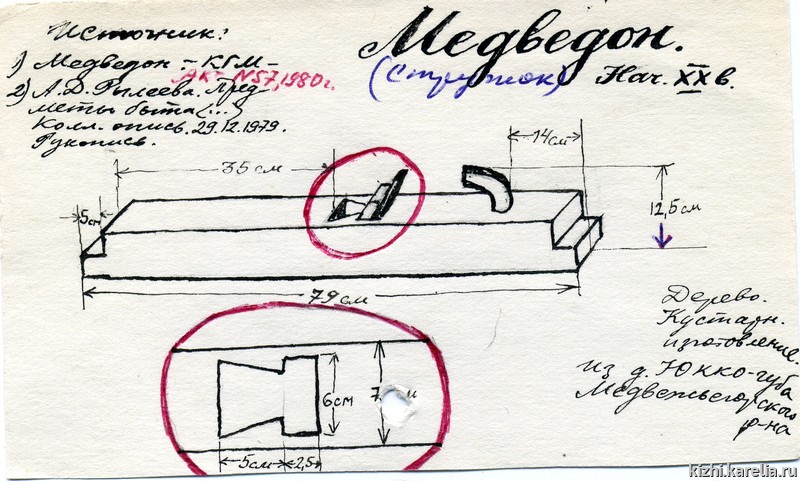 Источник:
1) Медведон - КГМ -
АК- N57, 1980г.
2) А.Д. Рылеева. Пред-
меты быта (...)
Колл. опись. 29.12.1979.
Рукопись.
Медведон.
(Стружок) Нач. XX в.
14см
35 см
5см
12,5 см
79 см
Дерево.
Кустарн.
изготовление.
из д. Юкко-губа
Медвежьегорского
р-на
6см
5см 2,5
kizhi.karelia.ru